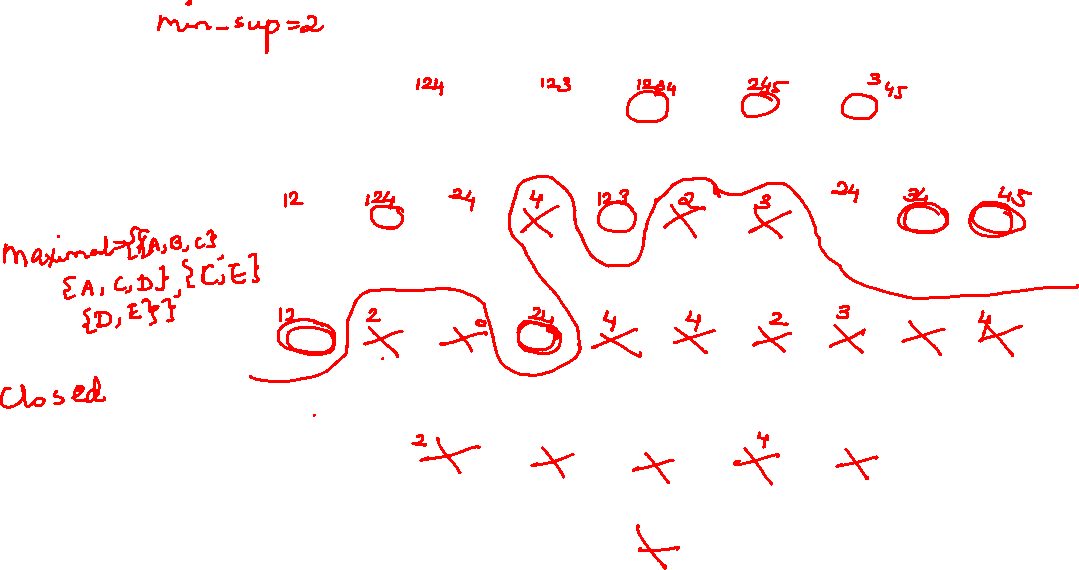 min_sup=2
124 123 1234 245 345
12 124 24 4 123 2 3 24 34 45
Maximal={{A,B,C}
{A,C,D},{C,E}
{D,E}}
12 2 24 4 4 2 3 4
Closed
2 4